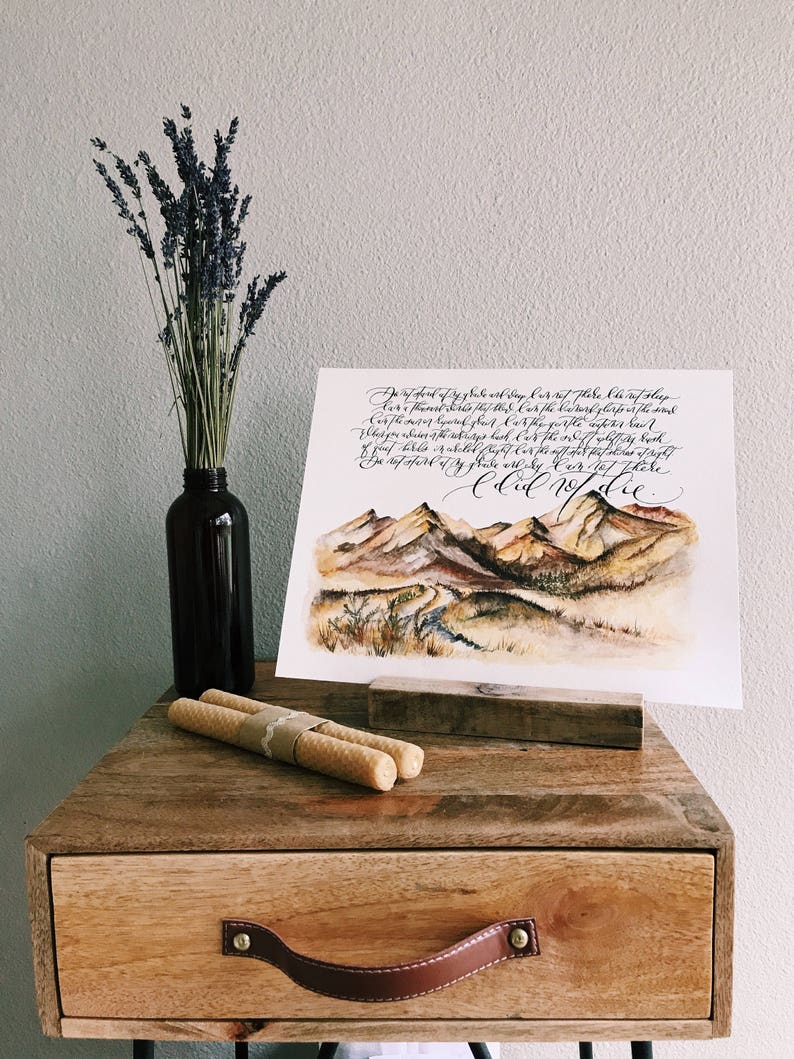 Do not stand at my grave and weep I am not There I do not sleep
I am a thousand winds that blow I am the diamond glints on the snow
I am the sun on ripened grain I am the gentle autumn rain
When you awaken in the morning's hush I am the swift uplifting rush
of quiet birds in circled flight I am the soft stars that shines at night
Do not stand at my grave and cry I am not There
I did not die.